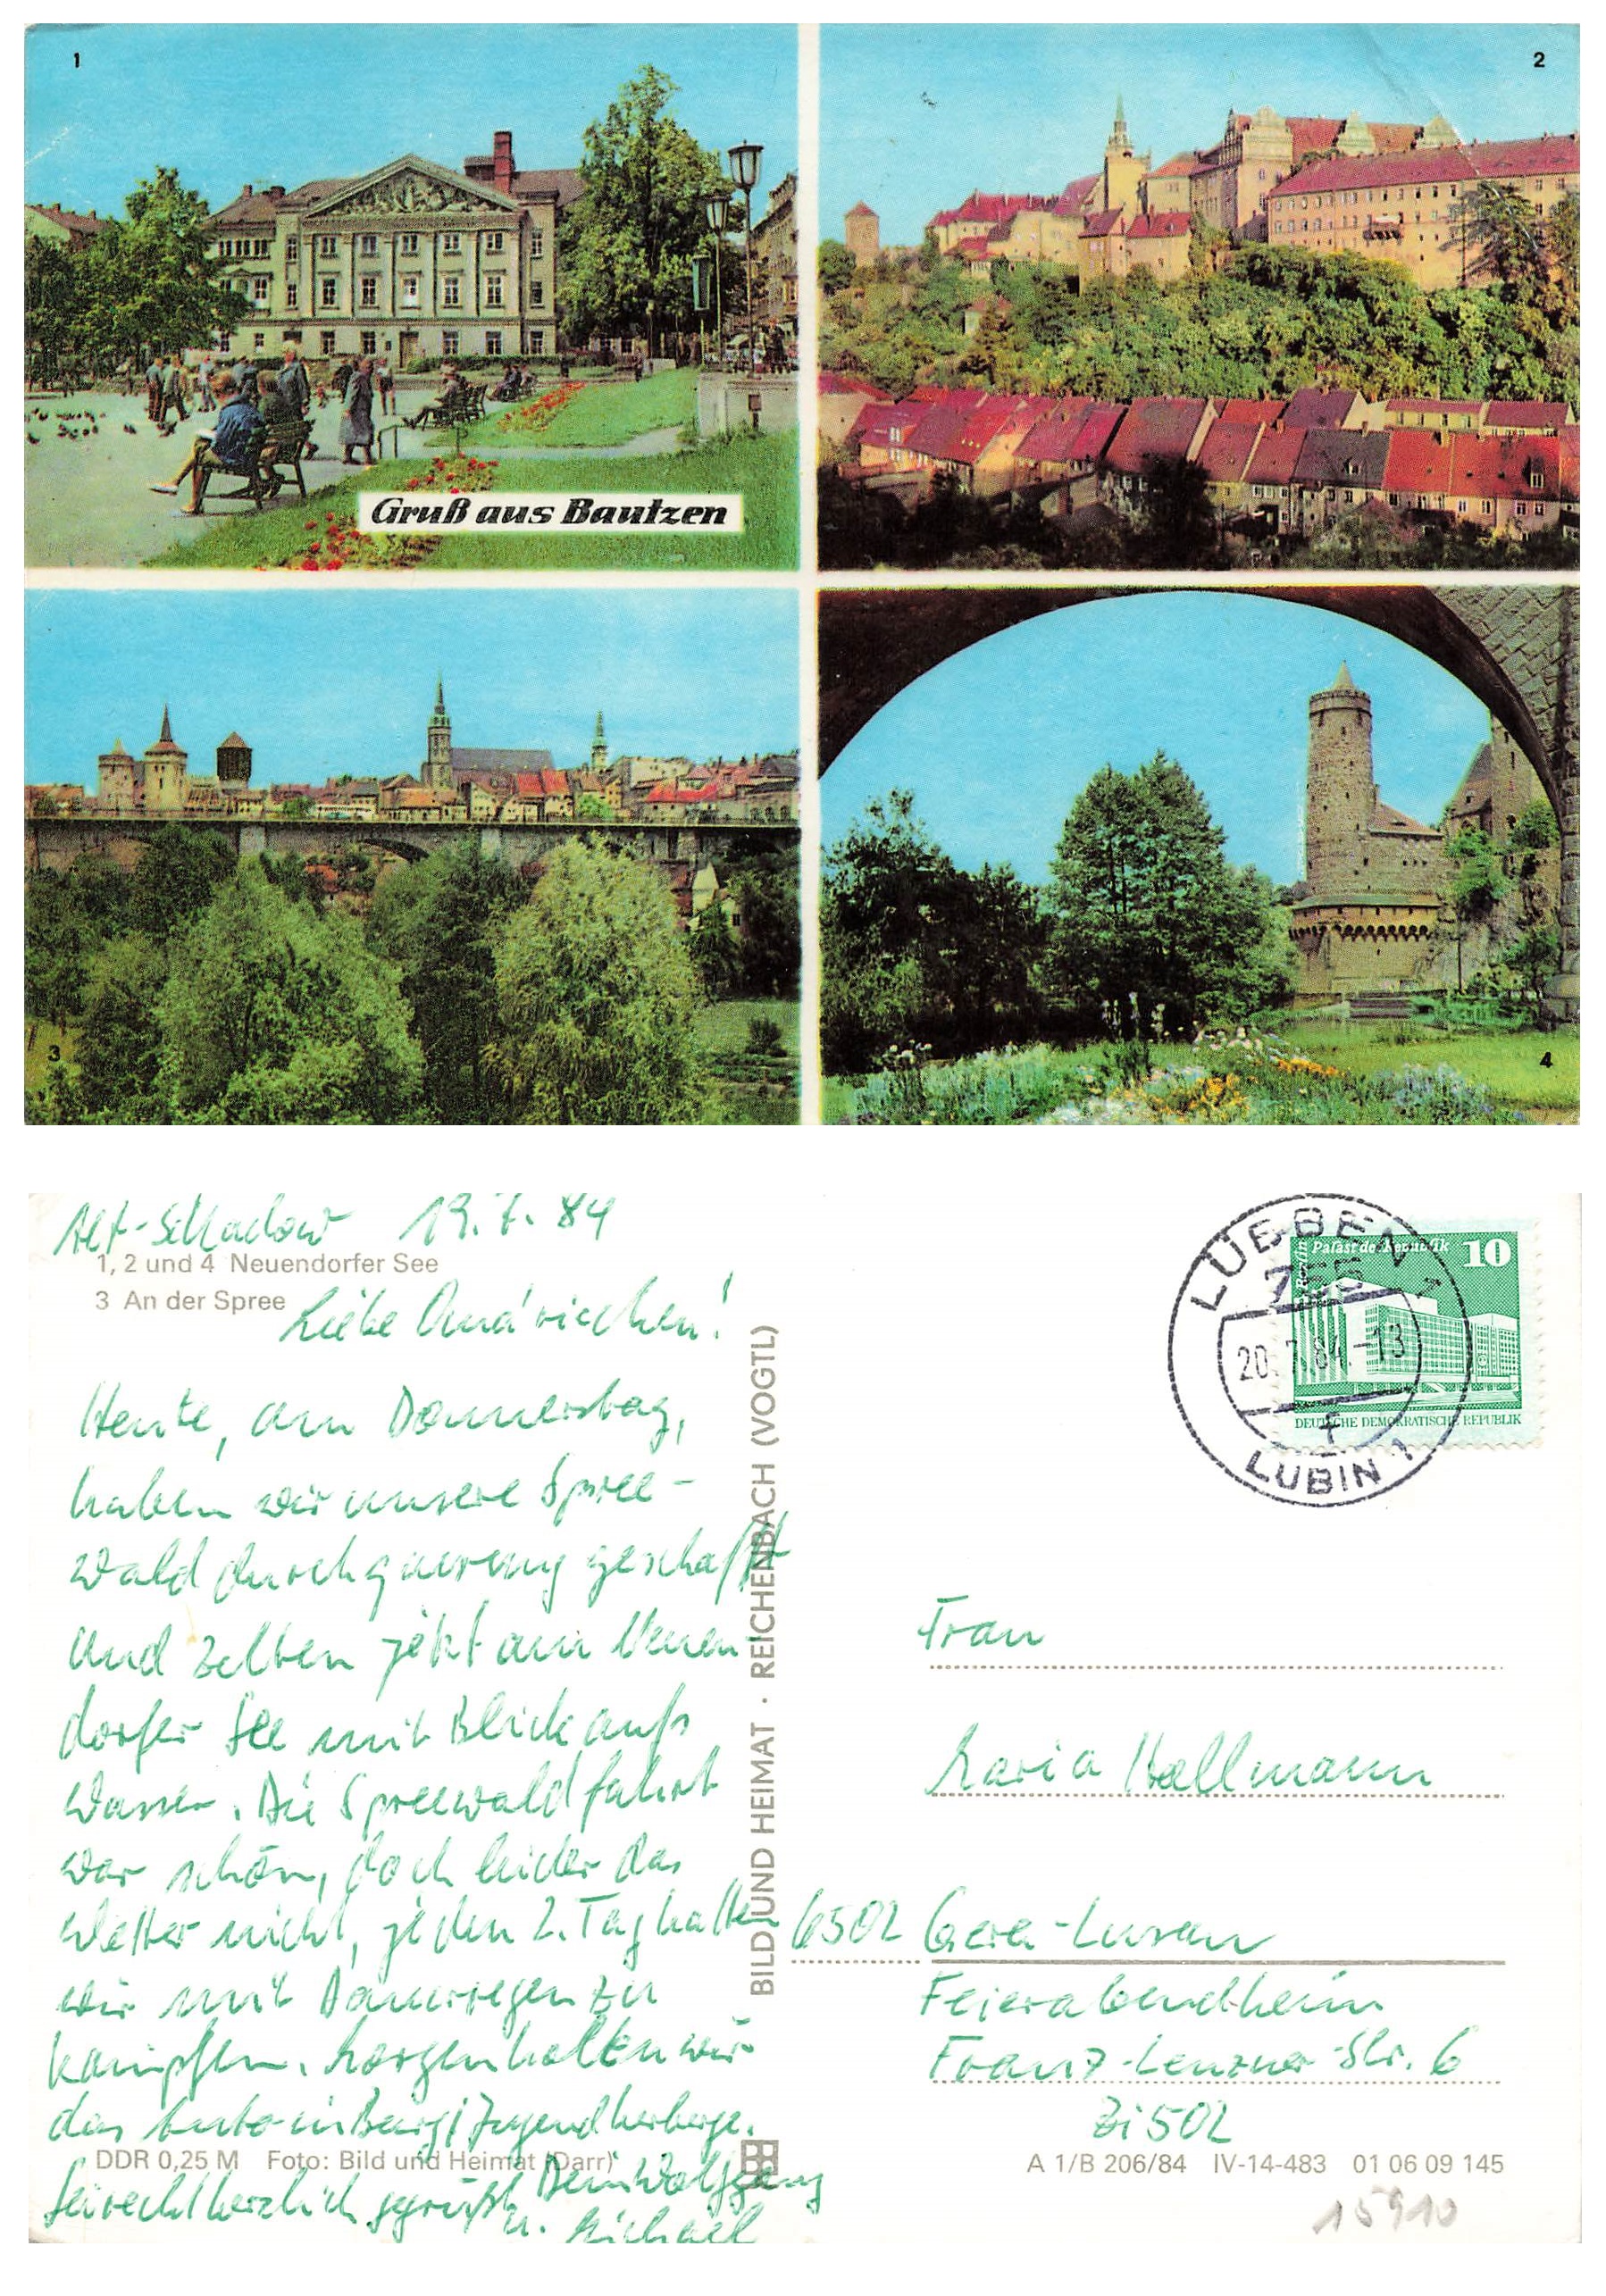 1
2
Gruß aus Bautzen
3
4
Alt-Schadow 19.7.84
1, 2 und 4 Neuendorfer See
3 An der Spree
Liebe
Heute, am Donnerstag,
haben wir unsere Spree-
walddurchquerung geschafft
und zelten jetzt am Neuen-
dorfer See mit Blick aufs
Wasser. Die Spreewaldfahrt
war schön, doch leider das
Wetter nicht, jeden 2. Tag hatten
wir mit Dauerregen zu
kämpfen. Morgen holten wir
das Auto in Burg/Jugendherberge.
Sei recht herzlich gegrüßt Dein Wolfgang
u. Michael
DDR 0,25 M Foto: Bild und Heimat (Darr)
BILD UND HEIMAT · REICHENBACH (VOGTL)
LÜBBEN 1
755
20.7.84.-13
f
LUBIN 1
Berlin Palast der Republik 10
DEUTSCHE DEMOKRATISCHE REPUBLIK
Frau
Maria Hallmann
6502 Gera-Lusan
Feierabendheim
Franz-Lenzner-Str. 6
Zi 502
A 1/B 206/84 IV-14-483 01 06 09 145
15910